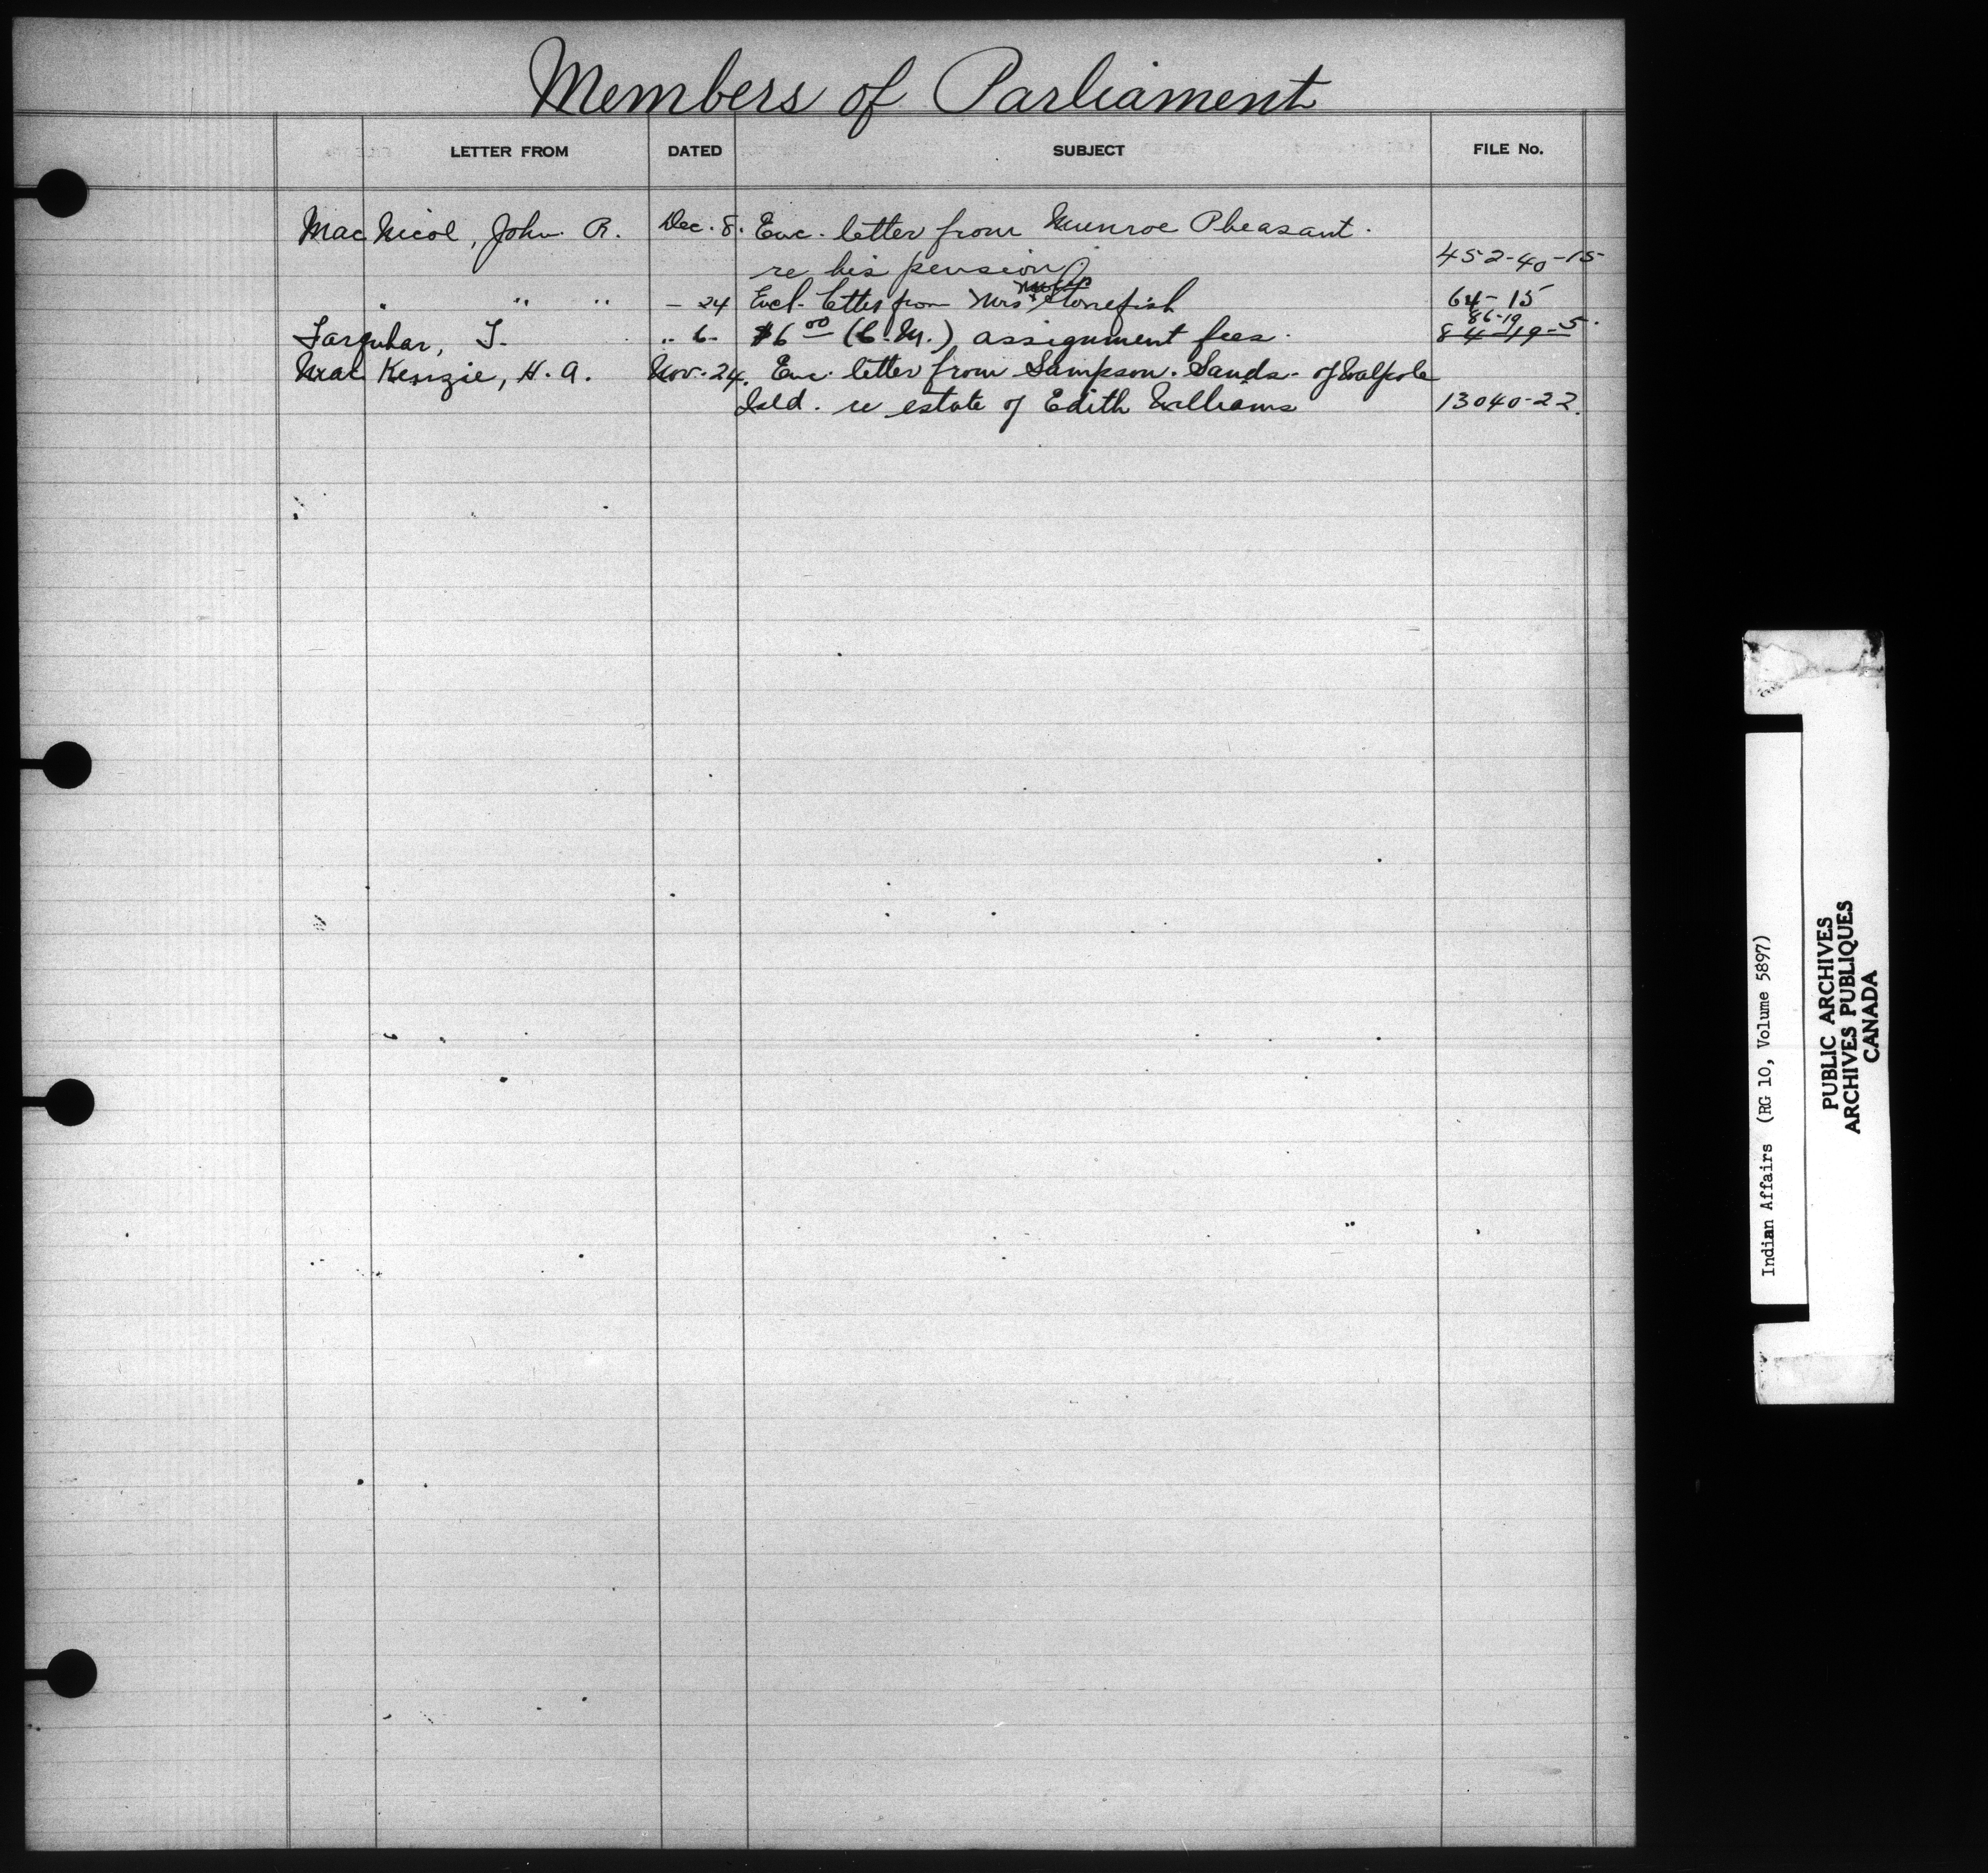 Members of Parliament
LETTER FROM DATED SUBJECT FILE No.
MacNicol, John R. Dec. 8. Enc. letter from Munroe Pheasant.
re his pension 452-40-15
" " " - 24 Encl. letter from Mrs Stonefish 64-15
86-19
Farquhar, T. " 6- $6 00 (C.M.) assignment fees. 84-19-5.
MacKenzie, H. A. Nov. 24. Enc. letter from Sampson Sands - of Walpole
Isld. re estate of Edith Williams 13040-22.
Indian Affairs (RG 10, Volume 5897)
PUBLIC ARCHIVES
ARCHIVES PUBLIQUES
CANADA